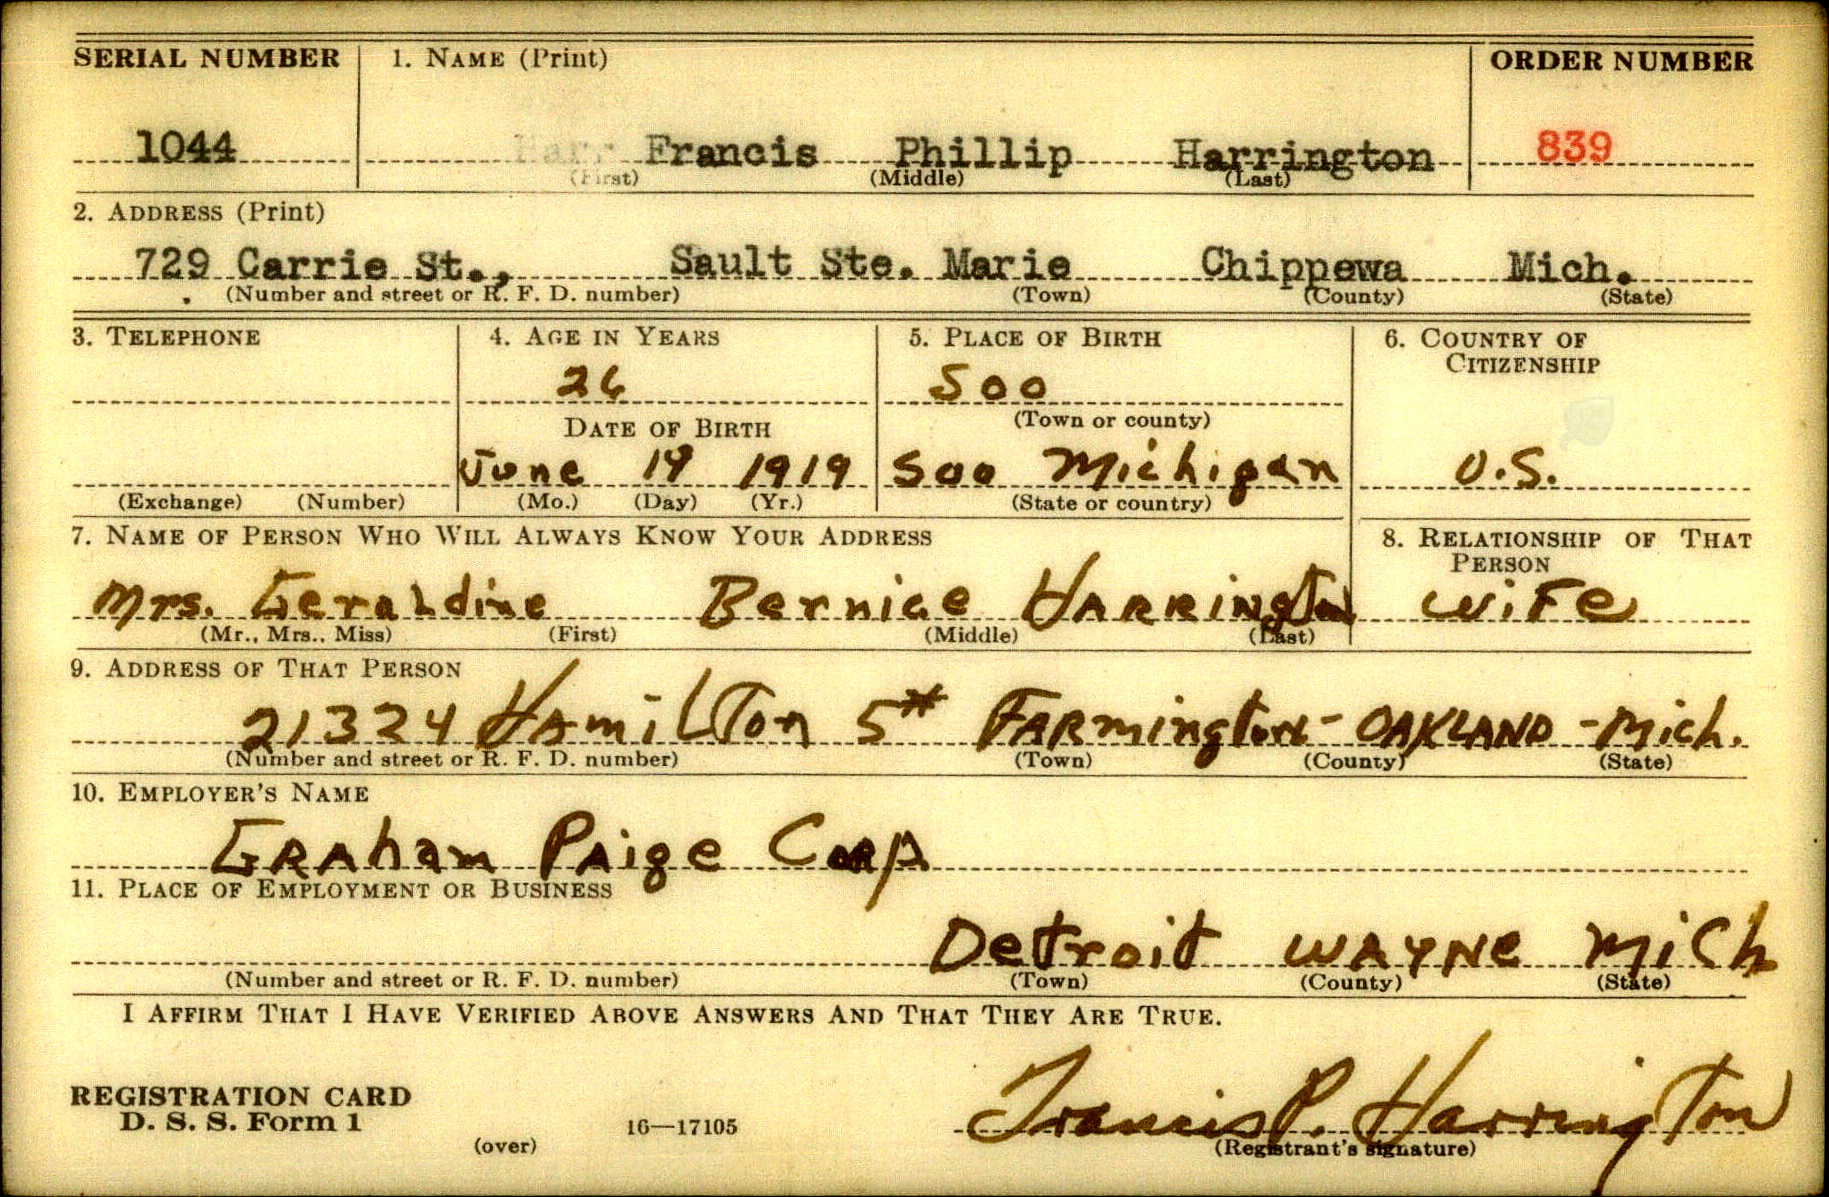 SERIAL NUMBER 1. NAME (Print) ORDER NUMBER
1044 Harr Francis Phillip Harrington 839
(First) (Middle) (Last)
2. ADDRESS (Print)
729 Carrie St., Sault Ste. Marie Chippewa Mich.
(Number and street or R. F. D. number) (Town) (County) (State)
3. TELEPHONE 4. AGE IN YEARS 5. PLACE OF BIRTH 6. COUNTRY OF
CITIZENSHIP
26 Soo
DATE OF BIRTH (Town or county)
June 1919 Soo Michigan U.S.
(Exchange) (Number) (Mo.) (Day) (Yr.) (State or country)
7. NAME OF PERSON WHO WILL ALWAYS KNOW YOUR ADDRESS 8. RELATIONSHIP OF THAT
PERSON
Mrs. Geraldine Bernice Harrington wife
(Mr., Mrs., Miss) (First) (Middle) (Last)
9. ADDRESS OF THAT PERSON
21324 Hamilton Farmington - OAKLAND - Mich.
(Number and street or R. F. D. number) (Town) (County) (State)
10. EMPLOYER'S NAME
Graham Paige Corp
11. PLACE OF EMPLOYMENT OR BUSINESS
Detroit WAYNE Mich
(Number and street or R. F. D. number) (Town) (County) (State)
I AFFIRM THAT I HAVE VERIFIED ABOVE ANSWERS AND THAT THEY ARE TRUE.
REGISTRATION CARD
D. S. S. Form 1 16—17105 Francis P. Harrington
(over) (Registrant's signature)